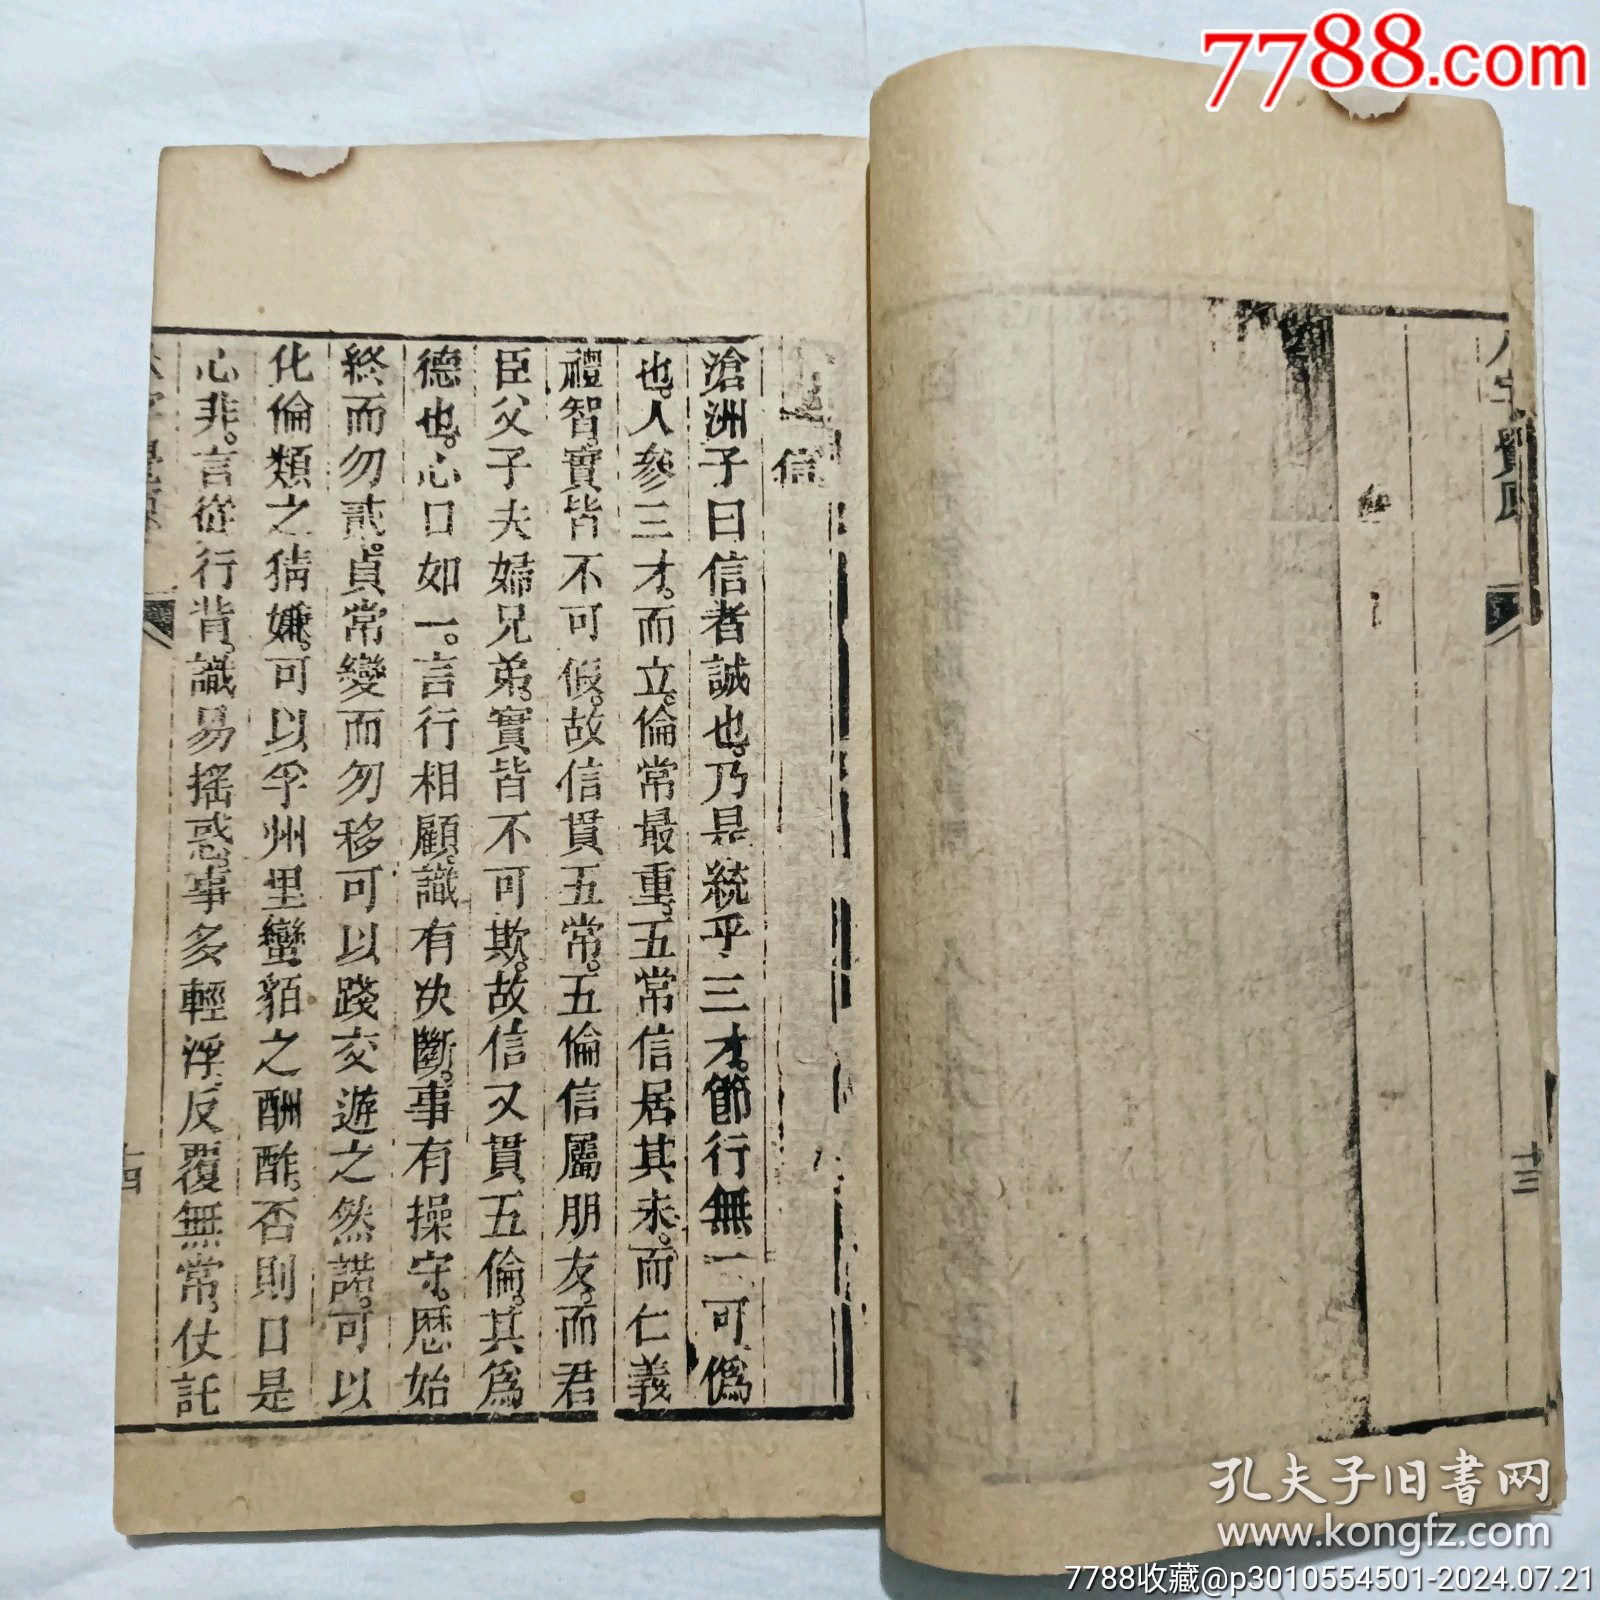 7788.com
信
滄洲子曰信者誠也。乃是統乎三才。節行無一可僞
也。人參三才。而立。倫常最重。五常信居其末。而仁義
禮智。實皆不可假。故信貫五常。五倫信屬朋友。而君
臣父子夫婦兄弟。實皆不可欺。故信又貫五倫。其爲
德也。心口如一。言行相顧。識有決斷。事有操守。歷始
終而勿貳。貞常變而勿移。可以踐交遊之然諾。可以
化倫類之猜嫌。可以孚州里蠻貊之酬酢。否則口是
心非。言從行背。識易搖惑。事多輕浮。反覆無常。仗託
十四
十三
孔夫子旧书网
www.kongfz.com
7788收藏@p3010554501-2024.07.21